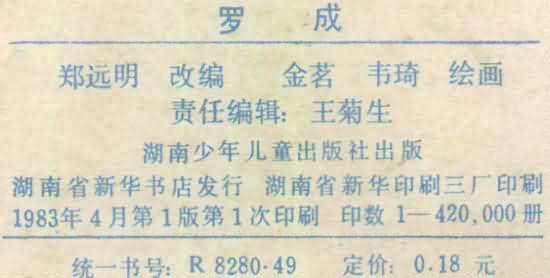 罗 成
郑远明 改编 金茗 韦琦 绘画
责任编辑: 王菊生
湖南少年儿童出版社出版
湖南省新华书店发行 湖南省新华印刷三厂印刷
1983年4月第1版第1次印刷 印数 1—420,000册
统一书号: R 8280·49 定价: 0.18 元